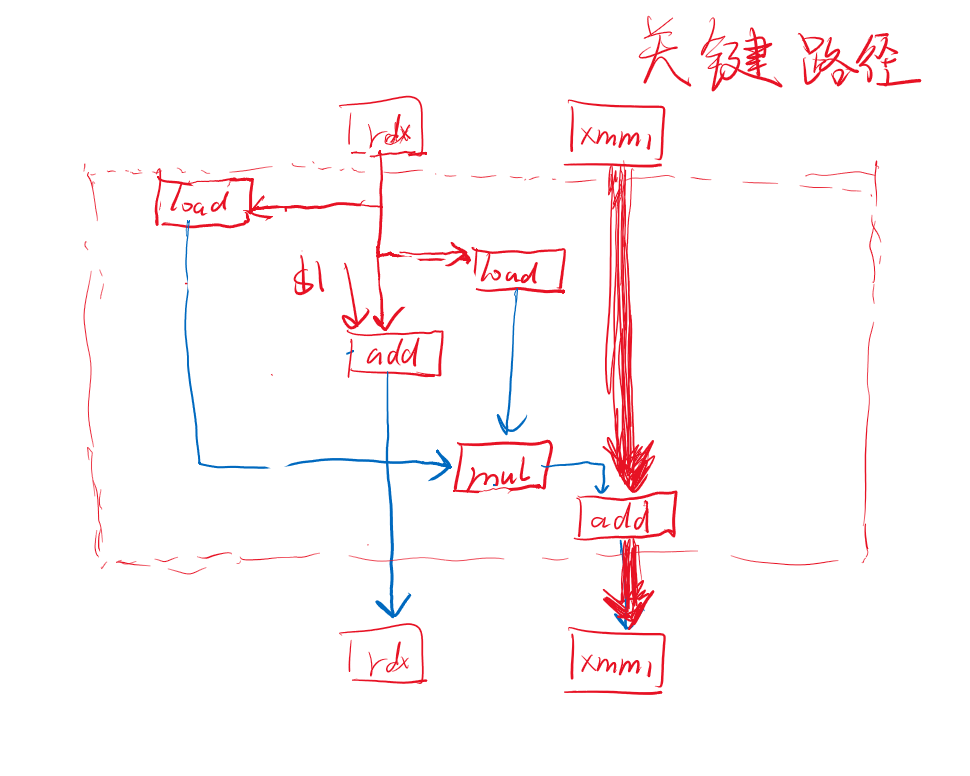 关键路径
rdx
xmm1
load
load
$1
add
mul
add
rdx
xmm1